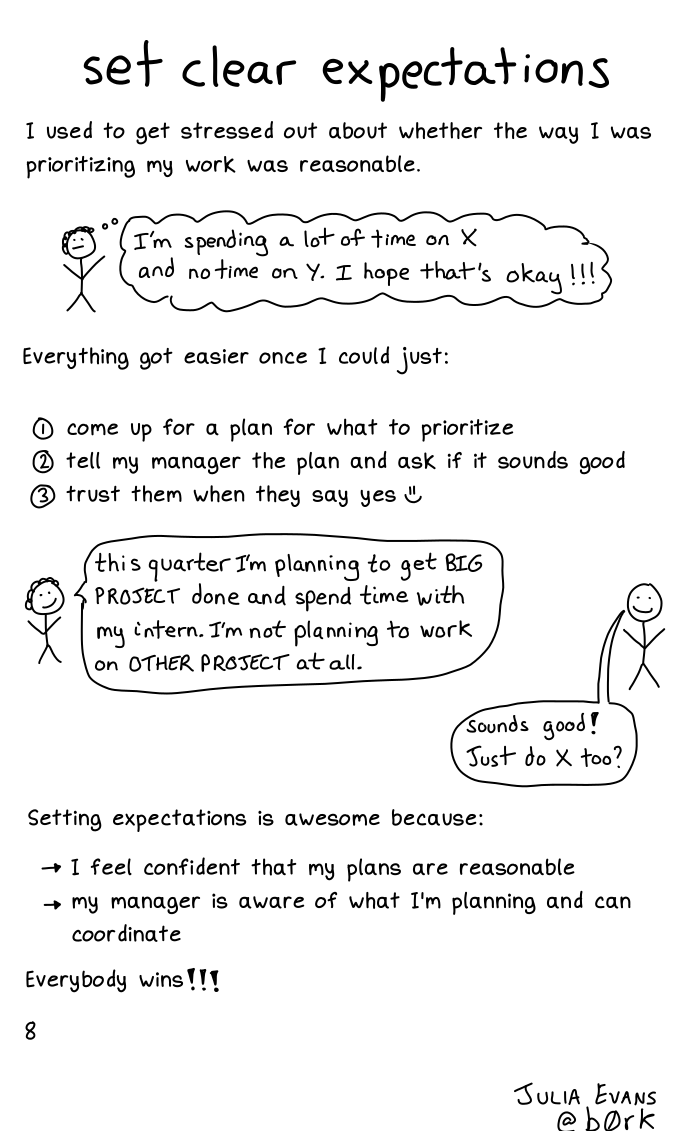 set clear expectations
I used to get stressed out about whether the way I was
prioritizing my work was reasonable.
I'm spending a lot of time on X
and no time on Y. I hope that's okay!!!
Everything got easier once I could just:
① come up for a plan for what to prioritize
② tell my manager the plan and ask if it sounds good
③ trust them when they say yes
this quarter I'm planning to get BIG
PROJECT done and spend time with
my intern. I'm not planning to work
on OTHER PROJECT at all.
Sounds good!
Just do X too?
Setting expectations is awesome because:
→ I feel confident that my plans are reasonable
→ my manager is aware of what I'm planning and can
coordinate
Everybody wins!!!
8
JULIA EVANS
@bØrk